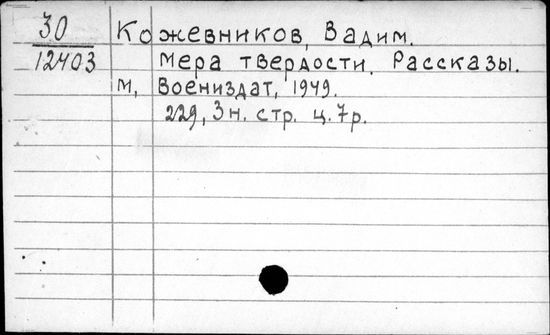 30
12403
Кожевников, Вадим.
Мера твердости. Рассказы.
М, Воениздат, 1949.
229, 3 н. стр. ц. 7 р.